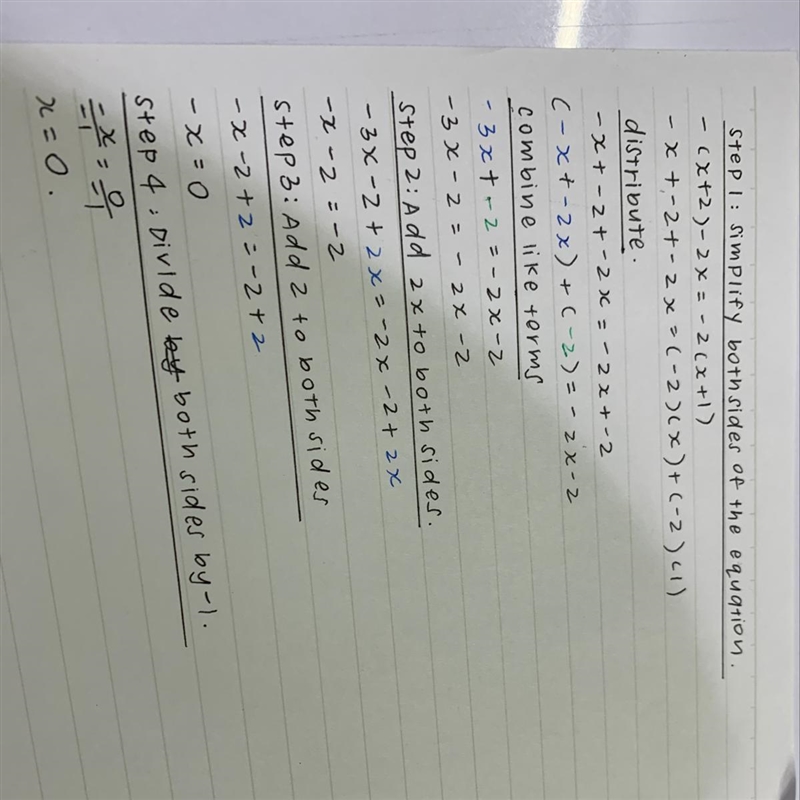 step 1: simplify both sides of the equation.
-(x+2)-2x=-2(x+1)
-x+-2+-2x=(-2)(x)+(-2)(1)
distribute.
-x+-2+-2x=-2x+-2
(-x+-2x)+(-2)=-2x-2
combine like terms
-3x+-2=-2x-2
-3x-2=-2x-2
step2: Add 2x to both sides.
-3x-2+2x=-2x-2+2x
-x-2=-2
step3: Add 2 to both sides
-x-2+2=-2+2
-x=0
step 4: Divide both sides by -1.
-x/-1=0/-1
x=0.